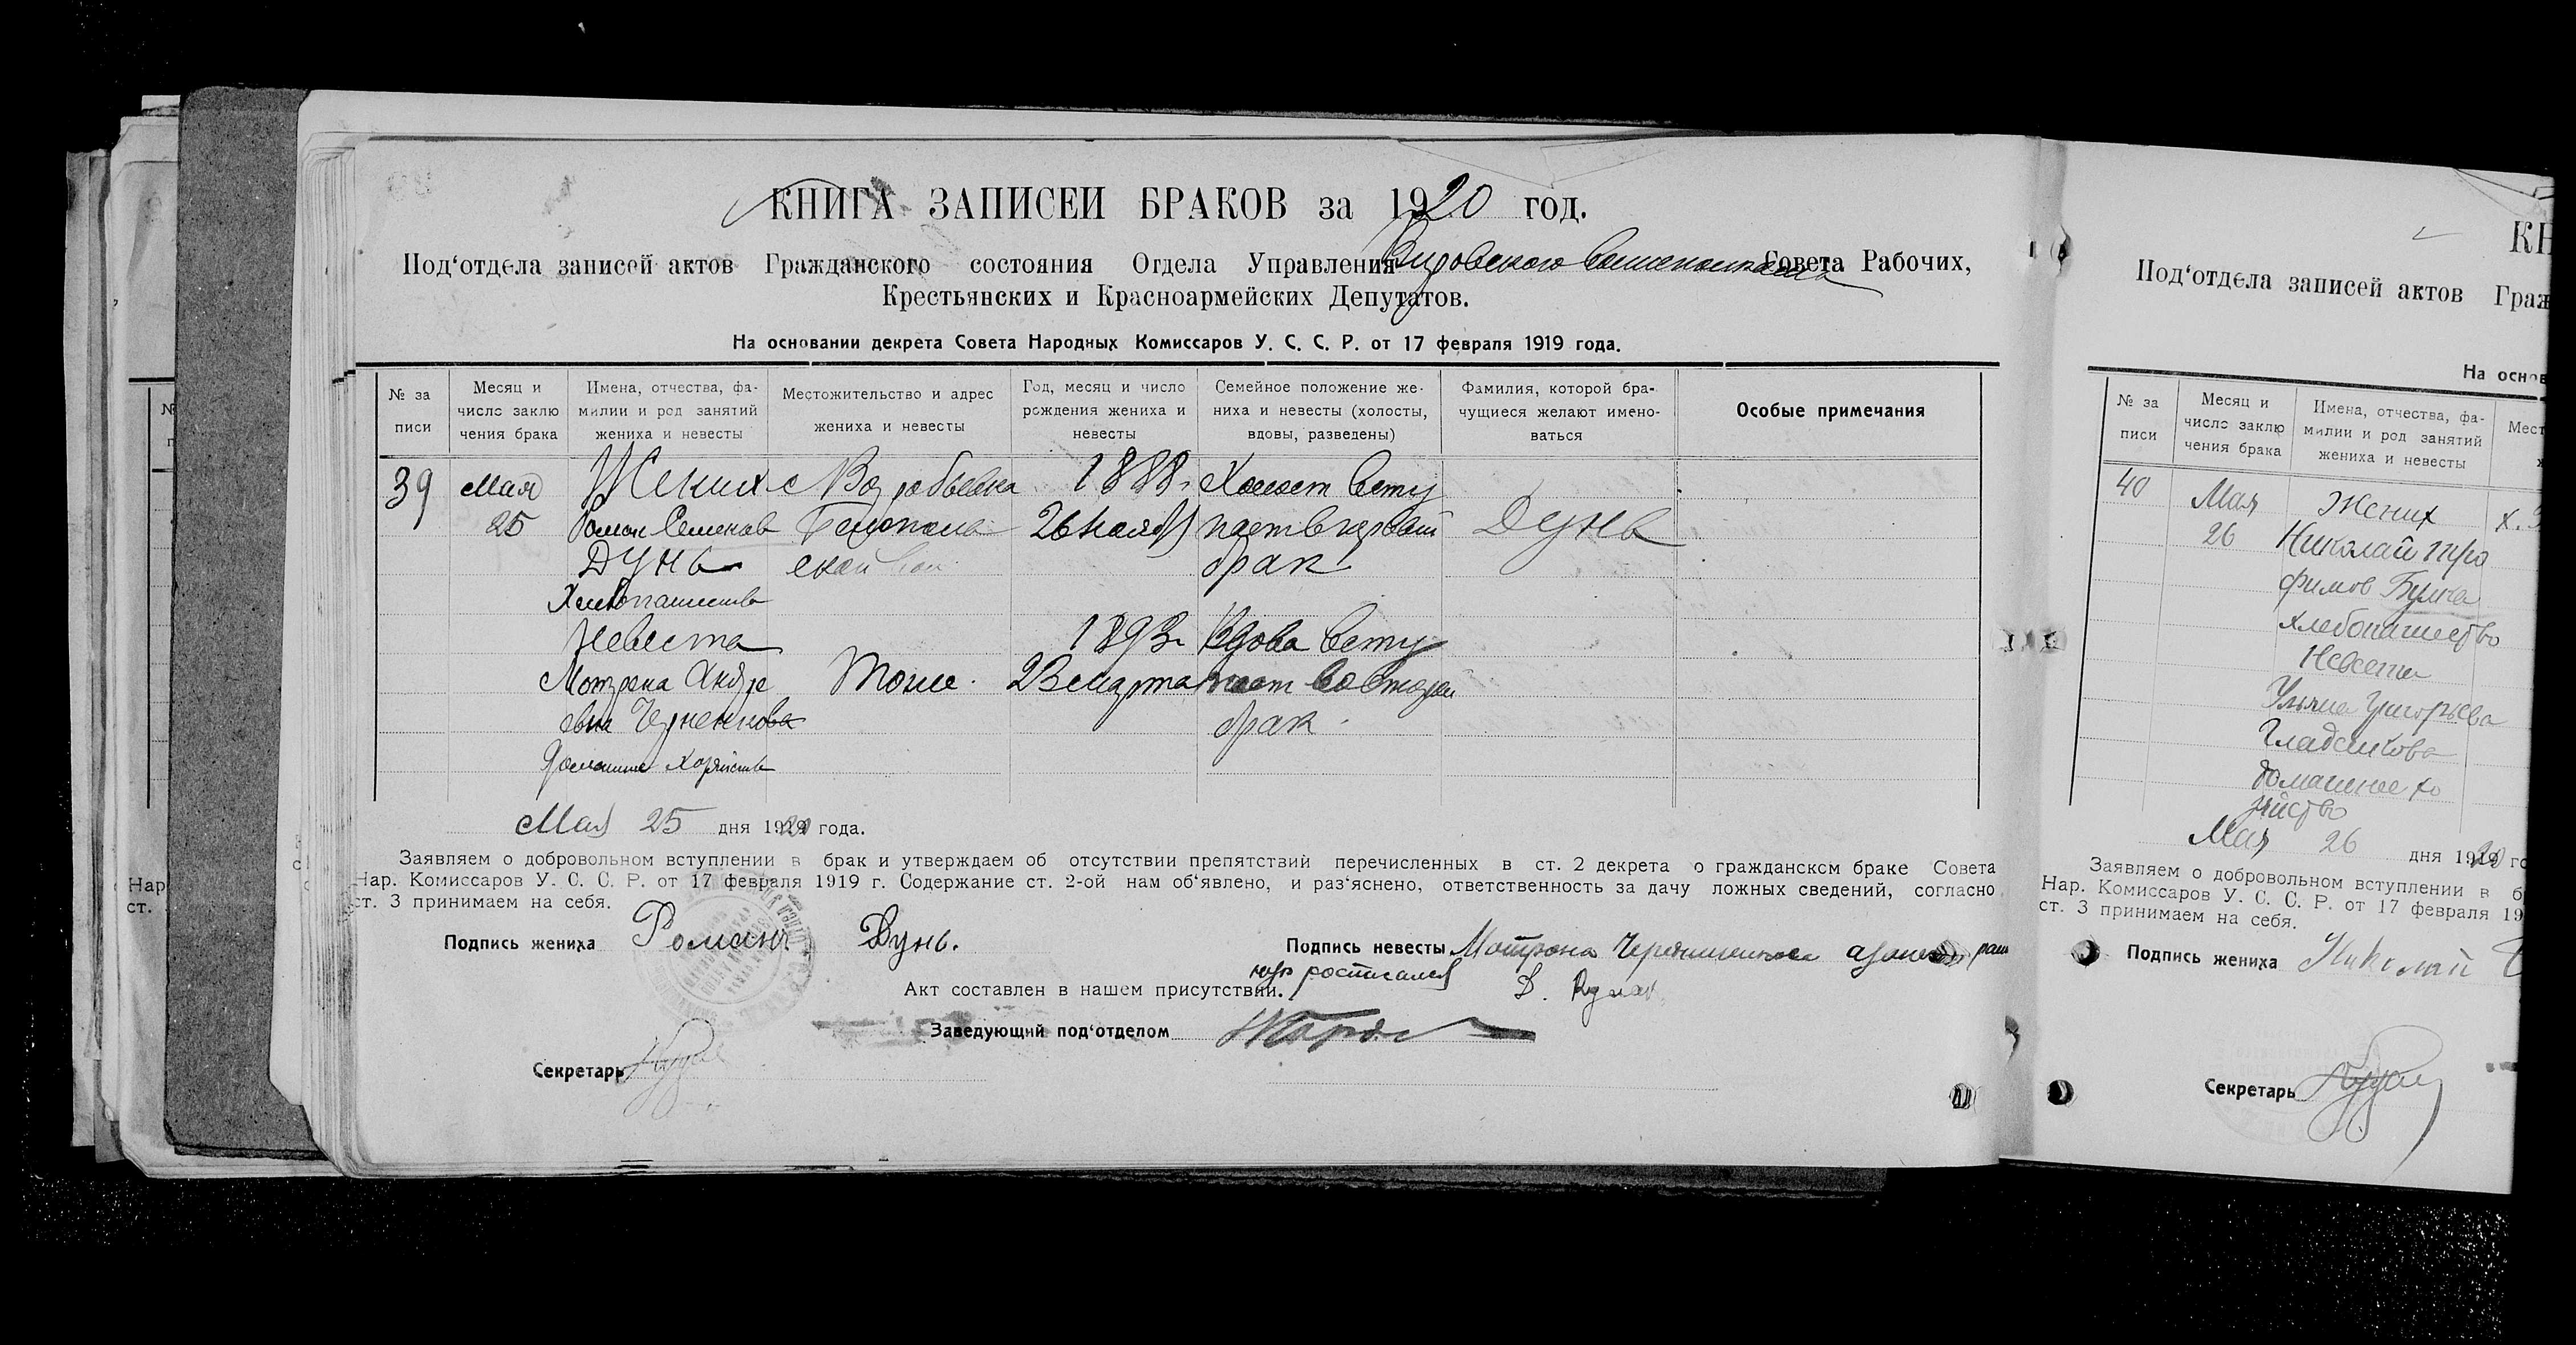 КНИГА ЗАПИСЕЙ БРАКОВ за 1920 год.
Под‘отдела записей актов Гражданского состояния Отдела Управления Совета Рабочих,
Крестьянских и Красноармейских Депутатов.
На основании декрета Совета Народных Комиссаров У. С. С. Р. от 17 февраля 1919 года.
№ за писи
Месяц и число заклю чения брака
Имена, отчества, фа- милии и род занятий жениха и невесты
Местожительство и адрес жениха и невесты
Год, месяц и число рождения жениха и невесты
Семейное положение же- ниха и невесты (холосты, вдовы, разведены)
Фамилия, которой бра- чущиеся желают имено- ваться
Особые примечания
39 Мая Жених 1888. Холост всту
25 Роман Семенов 26 Ноября пает в первый Дунь
Дунь ской брак
Хлебопашество
Невеста 1893 Вдова всту
Мотрена Андре тоже. 23 марта пает во второй
евна брак.
домашние хозяйство
Мая 25 дня 1920 года.
Заявляем о добровольном вступлении в брак и утверждаем об отсутствии препятствий перечисленных в ст. 2 декрета о гражданском браке Совета
Нар. Комиссаров У. С. С. Р. от 17 февраля 1919 г. Содержание ст. 2-ой нам об‘явлено, и раз‘яснено, ответственность за дачу ложных сведений, согласно
ст. 3 принимаем на себя.
Подпись жениха Романъ Дунь.
Подпись невесты Мотрона
росписался
Акт составлен в нашем присутствии.
Заведующий под‘отделом
Секретарь
КН
Под‘отдела записей актов Граж
На основ
№ за писи
Месяц и число заклю чения брака
Имена, отчества, фа- милии и род занятий жениха и невесты
Мест
40 Мая Жених х.
26 Николай Тро
фимов
хлебопашество
Невеста
Ульяна Григорьева
Гладсикова
домашнее хо
зяйство
Мая 26 дня 1920 го
Заявляем о добровольном вступлении в б
Нар. Комиссаров У. С. С. Р. от 17 февраля 19
ст. 3 принимаем на себя.
Подпись жениха Николай
Секретарь
№
Нар
ст.